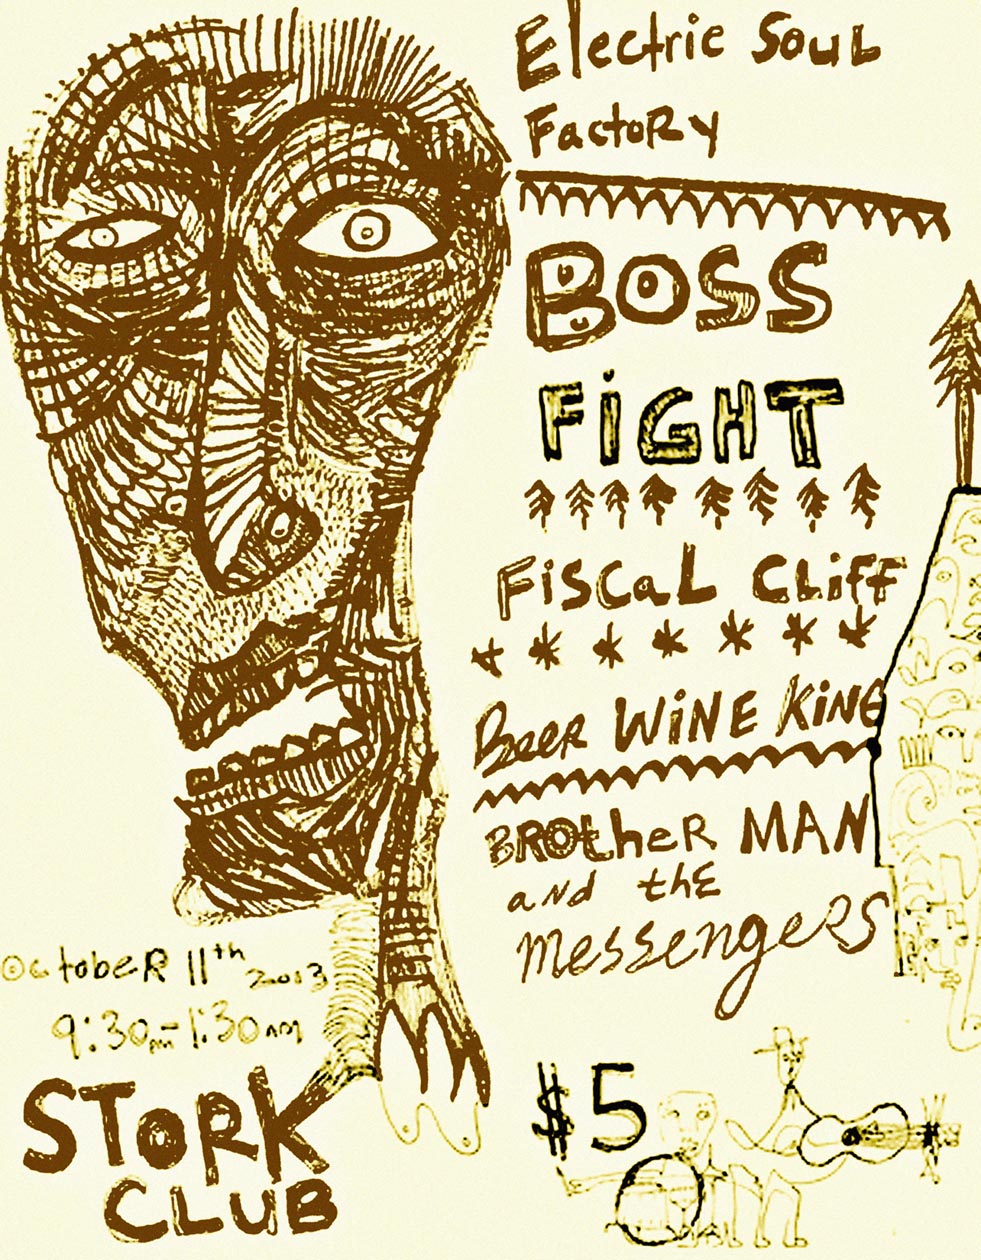 Electric Soul
Factory
BOSS
FiGHT
FiscaL CLiff
Beer WiNE KiNG
BROtheR MAN
aNd thE
MessengeRS
OctobeR 11th 2013
9:30pm-1:30am
STORK
CLUB
$5